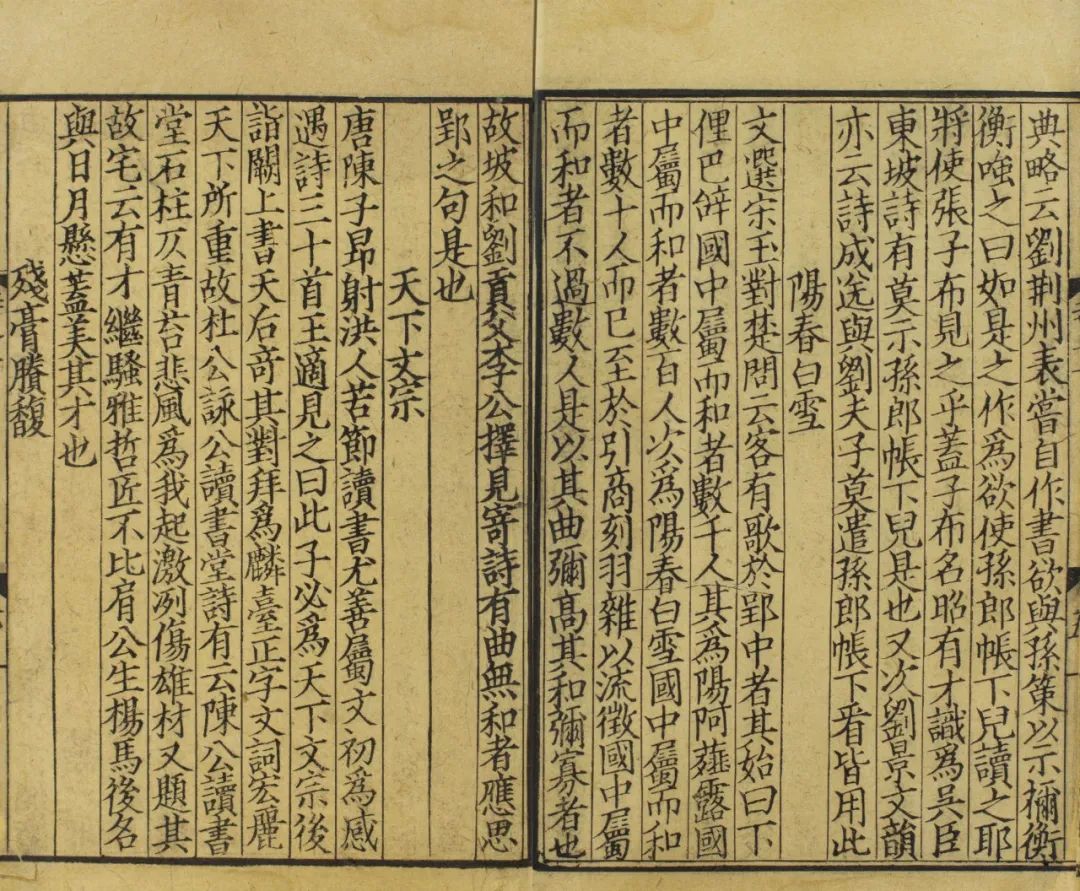 典略云劉荆州表嘗自作書欲與孫策以示禰衡
衡嗤之曰如是之作爲欲使孫郎帳下兒讀之耶
將使張子布見之乎蓋子布名昭有才識爲吳臣
東坡詩有莫示孫郎帳下兒是也又次劉景文韻
亦云詩成送與劉夫子莫遣孫郎帳下看皆用此
陽春白雪
文選宋玉對楚問云客有歌於郢中者其始曰下
俚巴辭國中屬而和者數千人其爲陽阿薤露國
中屬而和者數百人次爲陽春白雪國中屬而和
者數十人而已至於引商刻羽雜以流徵國中屬
而和者不過數人是以其曲彌高其和彌寡者也
故坡和劉貢父李公擇見寄詩有曲無和者應思
郢之句是也
天下文宗
唐陳子昂射洪人苦節讀書尤善屬文初爲感
遇詩三十首王適見之曰此子必爲天下文宗後
詣闕上書天后奇其對拜爲麟臺正字文詞宏麗
天下所重故杜公詠公讀書堂詩有云陳公讀書
堂石柱仄青苔悲風爲我起激冽傷雄材又題其
故宅云有才繼騷雅哲匠不比肩公生楊馬後名
與日月懸蓋美其才也
殘膏賸馥